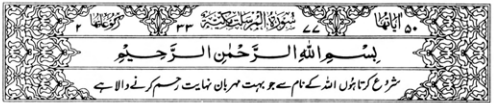 آیاتها ۵۰ ۷۷ سُوْرَةُ الْمُرْسَلٰتِ مَكِّيَّةٌ ۳۳ رکوعاتها ۲
بِسْمِ اللهِ الرَّحْمٰنِ الرَّحِيْمِ
شروع کرتا ہوں اللہ کے نام سے جو بہت مہربان نہایت رحم کرنے والا ہے